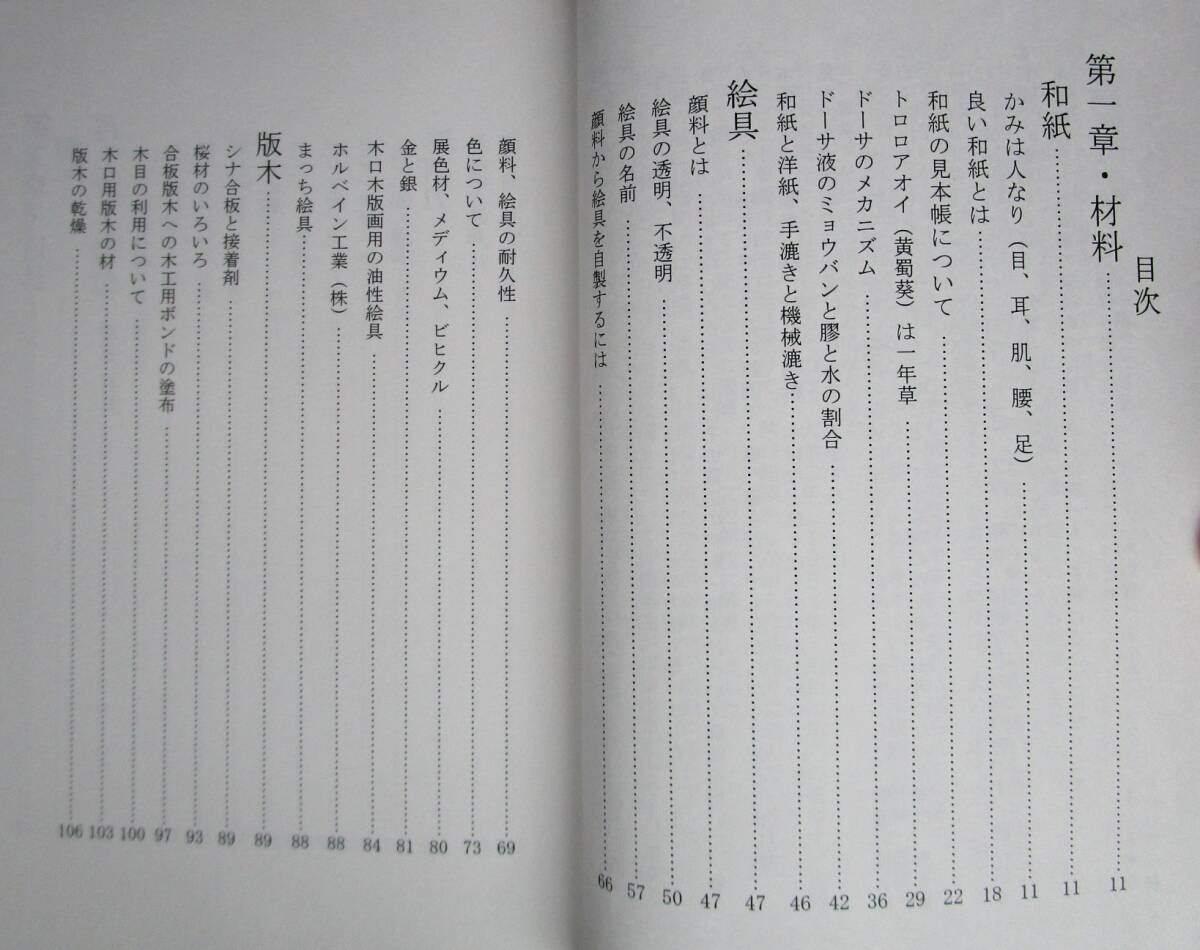 目次
第一章・材料 11
和紙 11
かみは人なり（目、耳、肌、腰、足） 11
良い和紙とは 18
和紙の見本帳について 22
トロロアオイ（黄蜀葵）は一年草 29
ドーサのメカニズム 36
ドーサ液のミョウバンと膠と水の割合 42
和紙と洋紙、手漉きと機械漉き 46
絵具 47
顔料とは 47
絵具の透明、不透明 50
絵具の名前 57
顔料から絵具を自製するには 66
顔料、絵具の耐久性 69
色について 73
展色材、メディウム、ビヒクル 80
金と銀 81
木口木版画用の油性絵具 84
ホルベイン工業（株） 88
まっち絵具 88
版木 89
シナ合板と接着剤 89
桜材のいろいろ 93
合板版木への木工用ボンドの塗布 97
木目の利用について 100
木口用版木の材 103
版木の乾燥 106